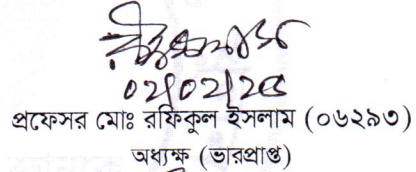 ০২/০২/২৫
প্রফেসর মোঃ রফিকুল ইসলাম (০৬২৯৩)
অধ্যক্ষ (ভারপ্রাপ্ত)